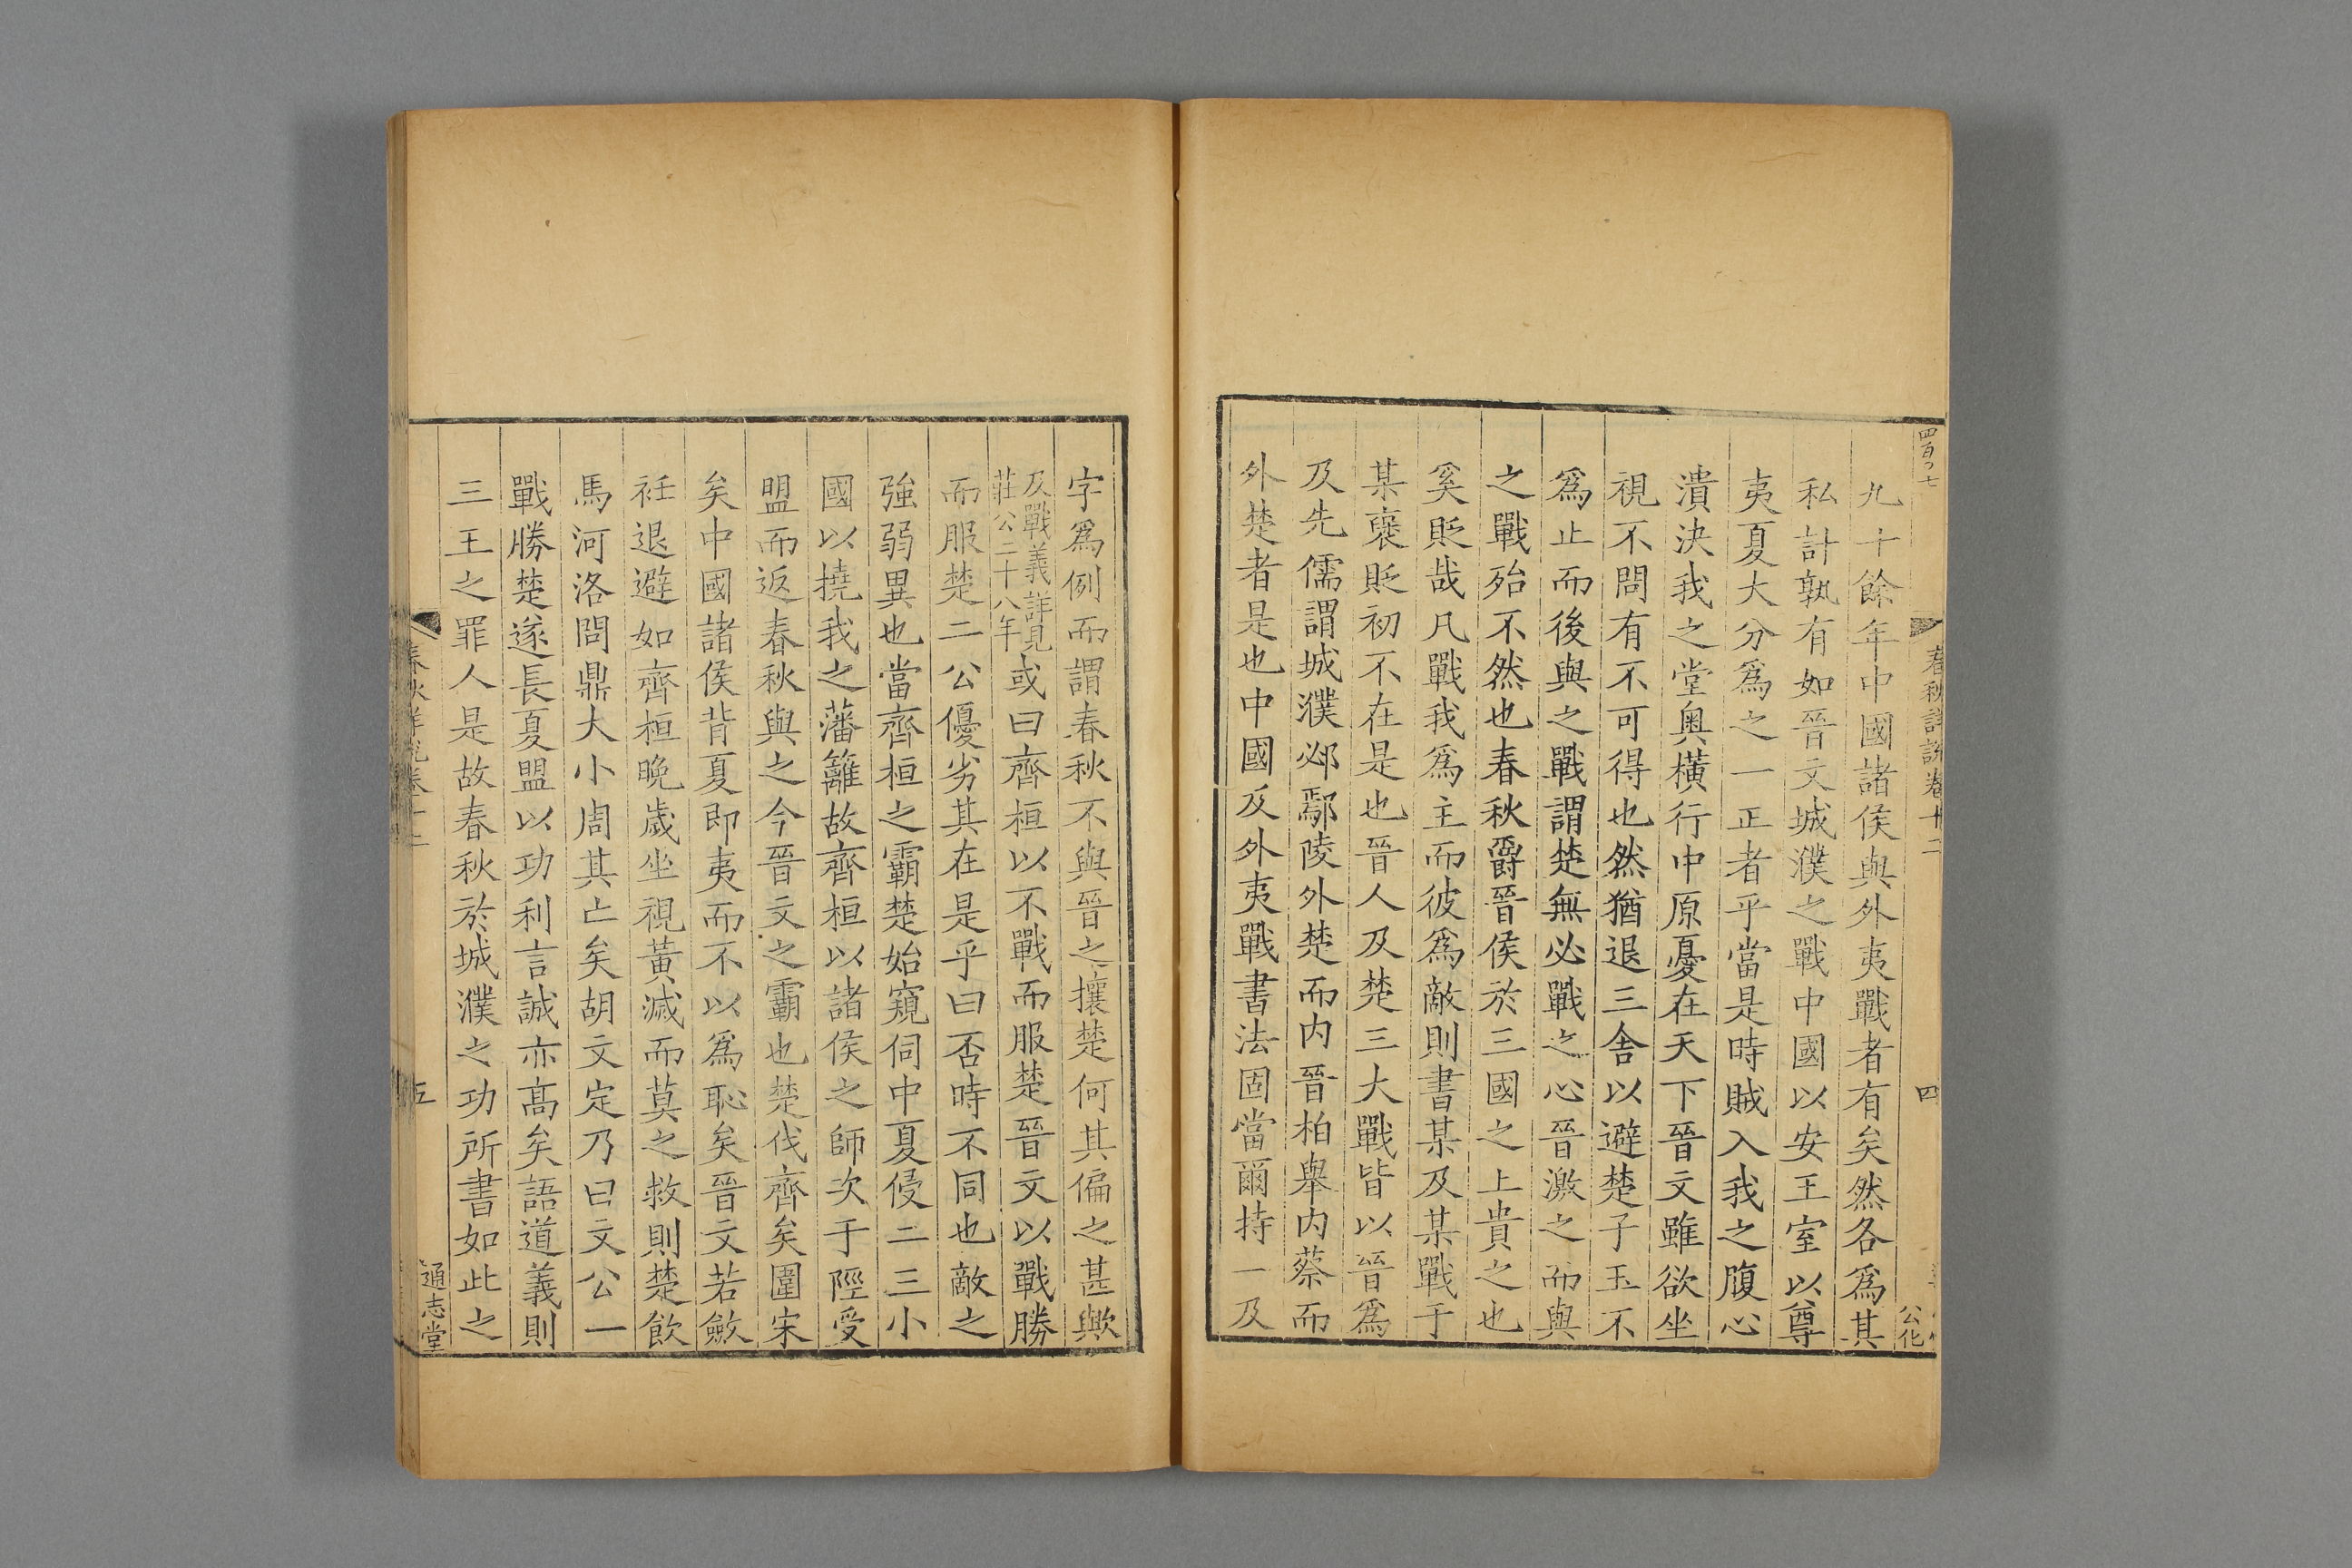 四百〇七
春秋詳說卷十二
四
公化
九十餘年中國諸侯與外夷戰者有矣然各爲其
私計孰有如晉文城濮之戰中國以安王室以尊
夷夏大分爲之一正者乎當是時賊入我之腹心
潰決我之堂奧橫行中原憂在天下晉文雖欲坐
視不問有不可得也然猶退三舍以避楚子玉不
爲止而後與之戰謂楚無必戰之心晉激之而與
之戰殆不然也春秋爵晉侯於三國之上貴之也
奚貶哉凡戰我爲主而彼爲敵則書某及某戰于
某襃貶初不在是也晉人及楚三大戰皆以晉爲
及先儒謂城濮邲鄢陵外楚而内晉柏舉内蔡而
外楚者是也中國及外夷戰書法固當爾持一及
字爲例而謂春秋不與晉之攘楚何其偏之甚歟
及戰義詳見
莊公二十八年
或曰齊桓以不戰而服楚晉文以戰勝
而服楚二公優劣其在是乎曰否時不同也敵之
強弱異也當齊桓之霸楚始窺伺中夏侵二三小
國以撓我之藩籬故齊桓以諸侯之師次于陘受
盟而返春秋與之今晉文之霸也楚伐齊矣圍宋
矣中國諸侯背夏即夷而不以爲恥矣晉文若斂
衽退避如齊桓晚歲坐視黃滅而莫之救則楚飲
馬河洛問鼎大小周其亡矣胡文定乃曰文公一
戰勝楚遂長夏盟以功利言誠亦高矣語道義則
三王之罪人是故春秋於城濮之功所書如此之
春秋詳說卷十二
五
通志堂